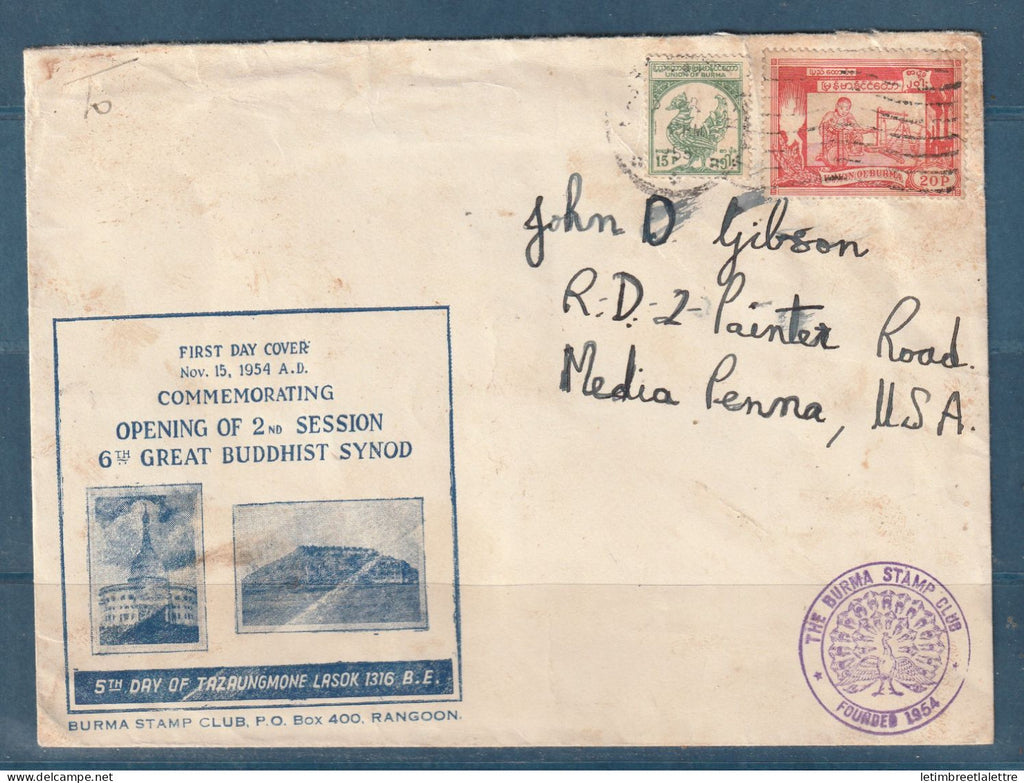 UNION OF BURMA
15 P
မြန်မာနိုင်ငံတော်
UNION OF BURMA
20 P
John D. Gibson
R.D.2 Painter Road.
Media Penna, USA.
FIRST DAY COVER
Nov. 15, 1954 A.D.
COMMEMORATING
OPENING OF 2ND SESSION
6TH GREAT BUDDHIST SYNOD
5TH DAY OF TAZAUNGMONE LASOK 1316 B.E.
BURMA STAMP CLUB, P.O. Box 400, RANGOON.
THE BURMA STAMP CLUB
FOUNDED 1954
delcampe.net
letimbreetlalettre